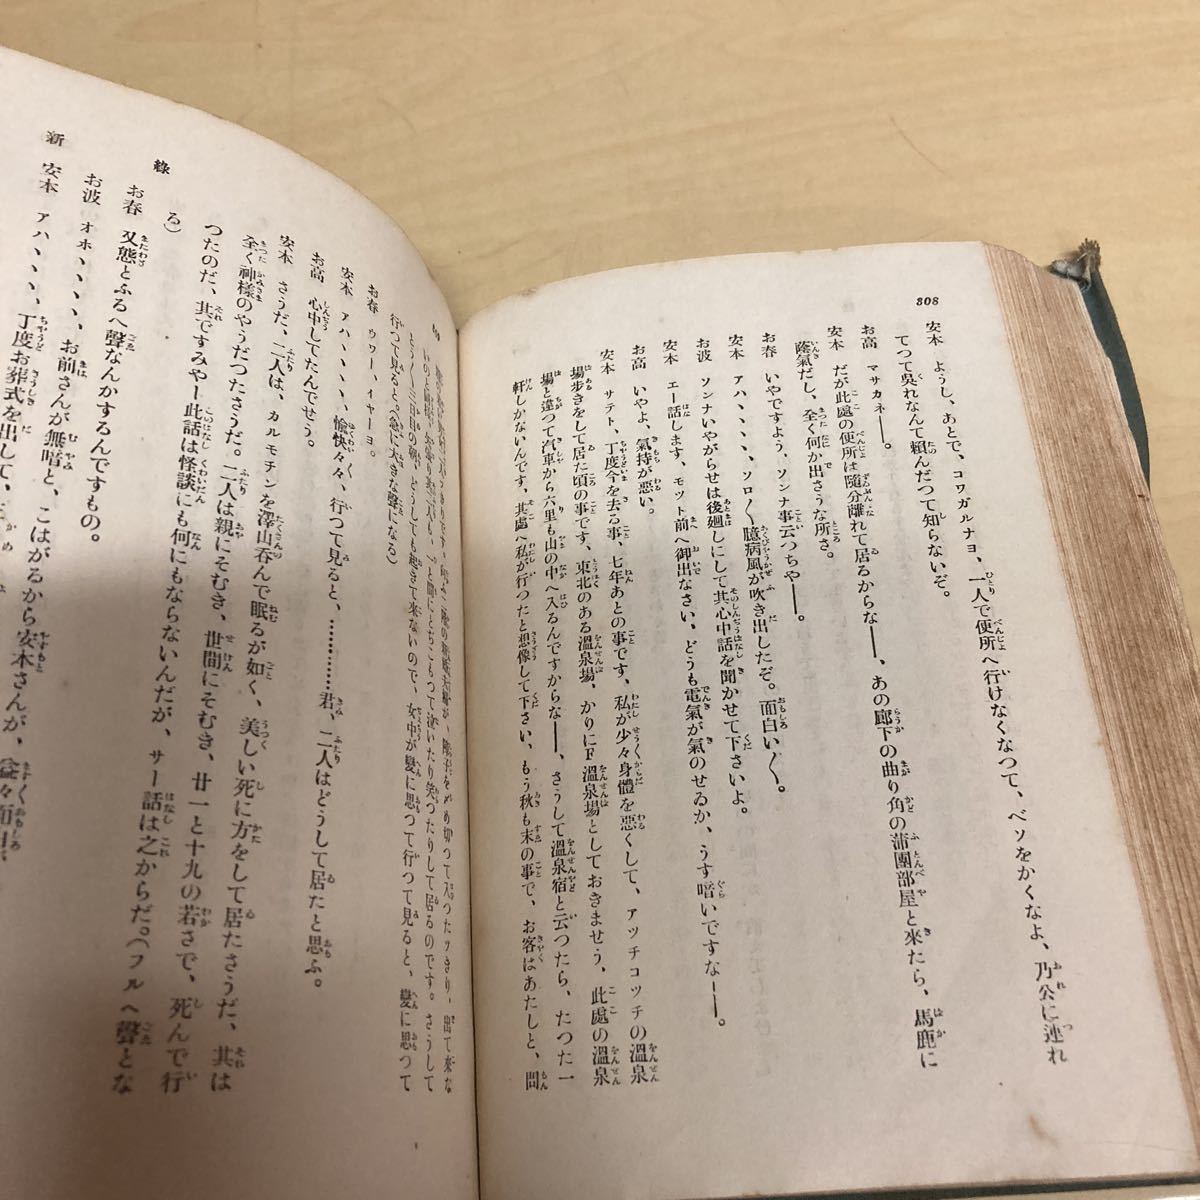 308
安本　ようし、あとで、コワガルナヨ、一人で便所へ行けなくなつて、ベソをかくなよ、乃公に連れ
てつて吳れなんて賴んだつて知らないぞ。
お高　マサカネー。
安本　だが此處の便所は隨分離れて居るからな――、あの廊下の曲り角の蒲團部屋と來たら、馬鹿に
蔭氣だし、全く何か出さうな所さ。
お春　いやですよう、ソンナ事云つちや――。
安本　アハヽヽヽ、ソロ〱臆病風が吹き出したぞ。面白い〱。
お波　ソンナいやがらせは後廻しにして其心中話を聞かせて下さいよ。
安本　エー話します、モツト前へ御出なさい、どうも電氣が氣のせゐか、うす暗いですな――。
お高　いやよ、氣持が惡い。
安本　サテト、丁度今を去る事、七年あとの事です、私が少々身體を惡くして、アツチコツチの溫泉
場步きをして居た頃の事です、東北のある溫泉場、かりにF溫泉場としておきませう、此處の溫泉
場と違つて汽車から六里も山の中へ入るんですからな――、さうして溫泉宿と云つたら、たつた一
軒しかないんです、其處へ私が行つたと想像して下さい、もう秋も末の事で、お客はあたしと、問
め切つて入つたツきり、出て來な
いのと
とう〱三日目の朝、どうしても起きて來ないので、女中が變に思つて行つて見ると、變に思つて
行つて見ると。(急に大きな聲になる)
お春　ウワー、イヤーヨ。
安本　アハヽヽヽヽ、愉快々々、行つて見ると、…………君、二人はどうして居たと思ふ。
お高　心中してたんでせう。
安本　さうだ、二人は、カルモチンを澤山呑んで眠るが如く、美しい死に方をして居たさうだ、其は
全く神樣のやうだつたさうだ。二人は親にそむき、世間にそむき、廿一と十九の若さで、死んで行
つたのだ、其ですみやー此話は怪談にも何にもならないんだが、サー話は之からだ。(フルヘ聲とな
る)
綠
お春　又態とふるへ聲なんかするんですもの。
お波　オホヽヽヽ、お前さんが無暗と、こはがるから安本さんが、益々面白
新
安本　アハヽヽヽ、丁度お葬式を出して、